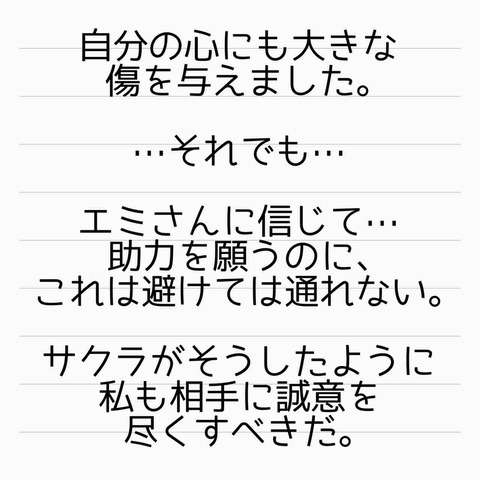 自分の心にも大きな
傷を与えました。
…それでも…
エミさんに信じて…
助力を願うのに、
これは避けては通れない。
サクラがそうしたように
私も相手に誠意を
尽くすべきだ。